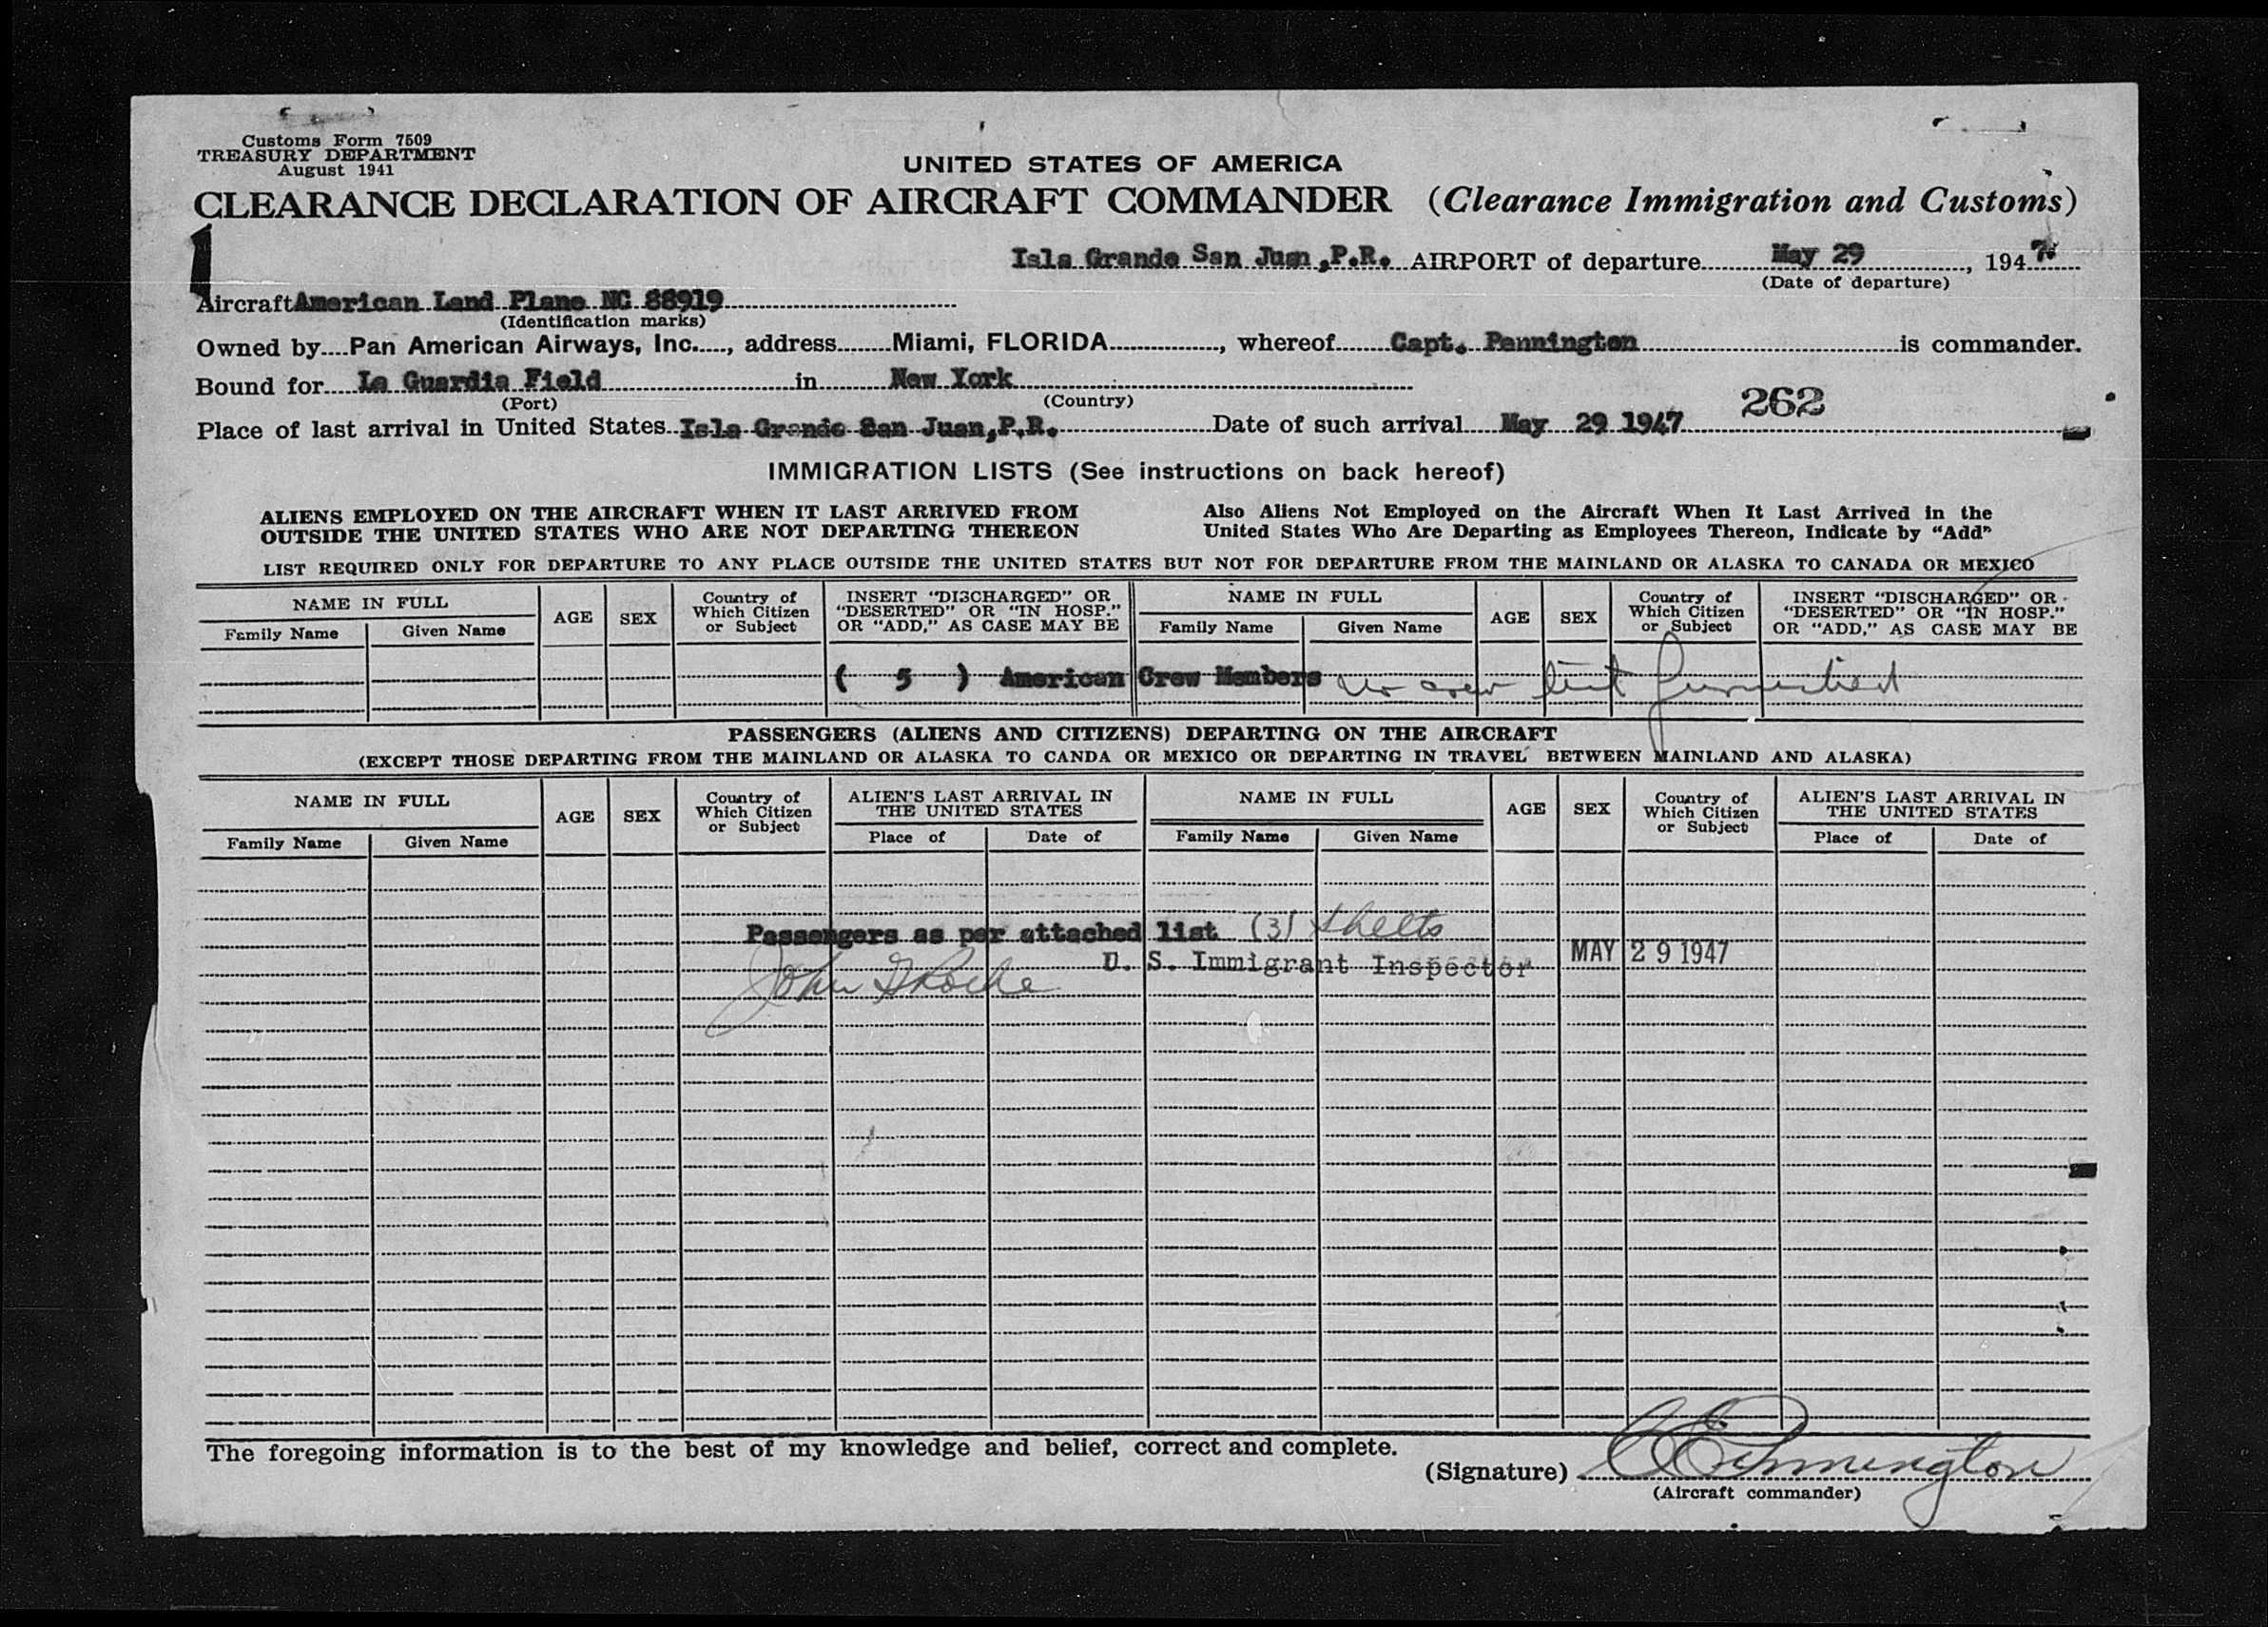 Customs Form 7509
TREASURY DEPARTMENT
August 1941
UNITED STATES OF AMERICA
CLEARANCE DECLARATION OF AIRCRAFT COMMANDER (Clearance Immigration and Customs)
Isla Grande San Juan, P.R. AIRPORT of departure May 29, 1947
(Date of departure)
Aircraft American Land Plane NC 88919
(Identification marks)
Owned by Pan American Airways, Inc., address Miami, FLORIDA, whereof Capt. Pennington is commander.
Bound for La Guardia Field in New York
(Port) (Country)
262
Place of last arrival in United States Isla Grande San Juan, P.R. Date of such arrival May 29 1947
IMMIGRATION LISTS (See instructions on back hereof)
ALIENS EMPLOYED ON THE AIRCRAFT WHEN IT LAST ARRIVED FROM
OUTSIDE THE UNITED STATES WHO ARE NOT DEPARTING THEREON
Also Aliens Not Employed on the Aircraft When It Last Arrived in the
United States Who Are Departing as Employees Thereon, Indicate by “Add”
LIST REQUIRED ONLY FOR DEPARTURE TO ANY PLACE OUTSIDE THE UNITED STATES BUT NOT FOR DEPARTURE FROM THE MAINLAND OR ALASKA TO CANADA OR MEXICO
NAME IN FULL
Family Name Given Name
AGE
SEX
Country of
Which Citizen
or Subject
INSERT “DISCHARGED” OR
“DESERTED” OR “IN HOSP.”
OR “ADD,” AS CASE MAY BE
NAME IN FULL
Family Name Given Name
AGE
SEX
Country of
Which Citizen
or Subject
INSERT “DISCHARGED” OR
“DESERTED” OR “IN HOSP.”
OR “ADD,” AS CASE MAY BE
( 5 ) American Crew Members no crew list furnished
PASSENGERS (ALIENS AND CITIZENS) DEPARTING ON THE AIRCRAFT
(EXCEPT THOSE DEPARTING FROM THE MAINLAND OR ALASKA TO CANDA OR MEXICO OR DEPARTING IN TRAVEL BETWEEN MAINLAND AND ALASKA)
NAME IN FULL
Family Name Given Name
AGE
SEX
Country of
Which Citizen
or Subject
ALIEN'S LAST ARRIVAL IN
THE UNITED STATES
Place of Date of
NAME IN FULL
Family Name Given Name
AGE
SEX
Country of
Which Citizen
or Subject
ALIEN'S LAST ARRIVAL IN
THE UNITED STATES
Place of Date of
Passengers as per attached list (3) sheets
U. S. Immigrant Inspector MAY 29 1947
John G Roche
The foregoing information is to the best of my knowledge and belief, correct and complete.
(Signature) C E Pennington
(Aircraft commander)